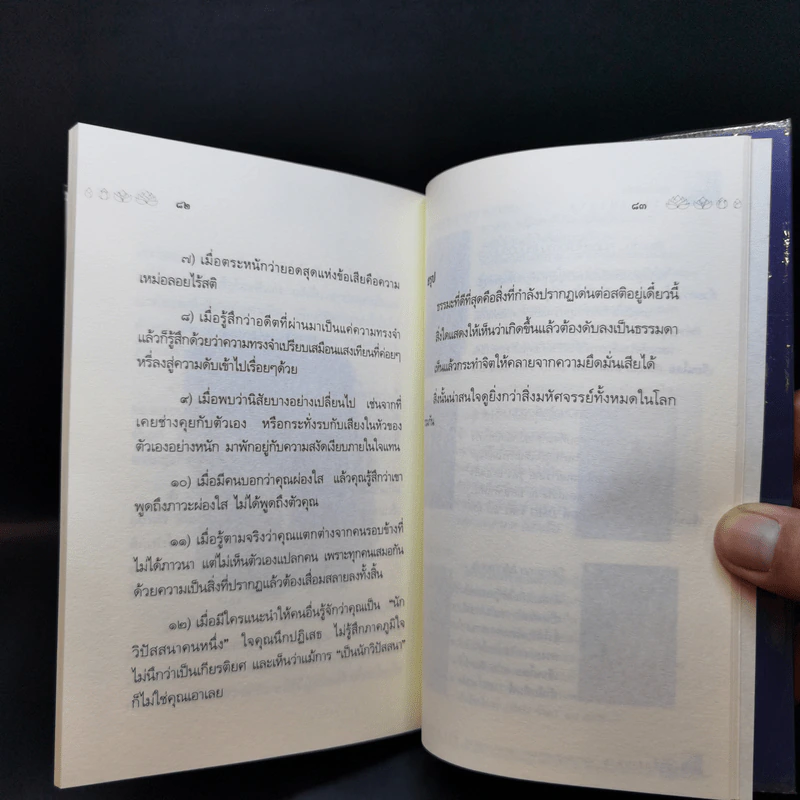 ๘๒
๗) เมื่อตระหนักว่ายอดสุดแห่งข้อเสียคือความ
เหม่อลอยไร้สติ
๘) เมื่อรู้สึกว่าอดีตที่ผ่านมาเป็นแค่ความทรงจำ
แล้วก็รู้สึกด้วยว่าความทรงจำเปรียบเสมือนแสงเทียนที่ค่อยๆ
หรี่ลงสู่ความดับเข้าไปเรื่อยๆด้วย
๙) เมื่อพบว่านิสัยบางอย่างเปลี่ยนไป เช่นจากที่
เคยช่างคุยกับตัวเอง หรือกระทั่งรบกับเสียงในหัวของ
ตัวเองอย่างหนัก มาพักอยู่กับความสงัดเงียบภายในใจแทน
๑๐) เมื่อมีคนบอกว่าคุณผ่องใส แล้วคุณรู้สึกว่าเขา
พูดถึงภาวะผ่องใส ไม่ได้พูดถึงตัวคุณ
๑๑) เมื่อรู้ตามจริงว่าคุณแตกต่างจากคนรอบข้างที่
ไม่ได้ภาวนา แต่ไม่เห็นตัวเองแปลกคน เพราะทุกคนเสมอกัน
ด้วยความเป็นสิ่งที่ปรากฏแล้วต้องเสื่อมสลายลงทั้งสิ้น
๑๒) เมื่อมีใครแนะนำให้คนอื่นรู้จักว่าคุณเป็น "นัก
วิปัสสนาคนหนึ่ง" ใจคุณนึกปฏิเสธ ไม่รู้สึกภาคภูมิใจ
ไม่นึกว่าเป็นเกียรติยศ และเห็นว่าแม้การ "เป็นนักวิปัสสนา"
ก็ไม่ใช่คุณเอาเลย
๘๓
รุป
ธรรมะที่ดีที่สุดคือสิ่งที่กำลังปรากฏเด่นต่อสติอยู่เดี๋ยวนี้
สิ่งใดแสดงให้เห็นว่าเกิดขึ้นแล้วต้องดับลงเป็นธรรมดา
เห็นแล้วกระทำจิตให้คลายจากความยึดมั่นเสียได้
สิ่งนั้นน่าสนใจดูยิ่งกว่าสิ่งมหัศจรรย์ทั้งหมดในโลก